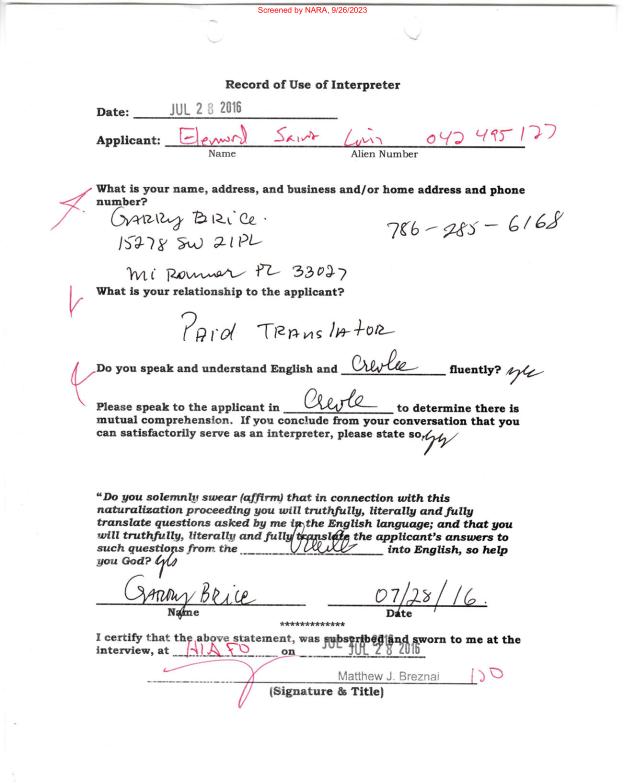 Screened by NARA, 9/26/2023
Record of Use of Interpreter
Date: JUL 28 2016
Applicant: Saint Louis 042 495 127
Name Alien Number
What is your name, address, and business and/or home address and phone
number?
GARRY BRICE. 786-285-6168
15278 SW 21PL
FL 33027
What is your relationship to the applicant?
PAID TRANSLATOR
Do you speak and understand English and Creolee fluently? yes
Please speak to the applicant in Creole to determine there is
mutual comprehension. If you conclude from your conversation that you
can satisfactorily serve as an interpreter, please state so. yes
"Do you solemnly swear (affirm) that in connection with this
naturalization proceeding you will truthfully, literally and fully
translate questions asked by me in the English language; and that you
will truthfully, literally and fully translate the applicant's answers to
such questions from the Creole into English, so help
you God? yes
GARRY BRICE 07/28/16.
Name Date
*************
I certify that the above statement, was subscribed and sworn to me at the
interview, at HIAFO on JUL 28 2016
Matthew J. Breznai
(Signature & Title)